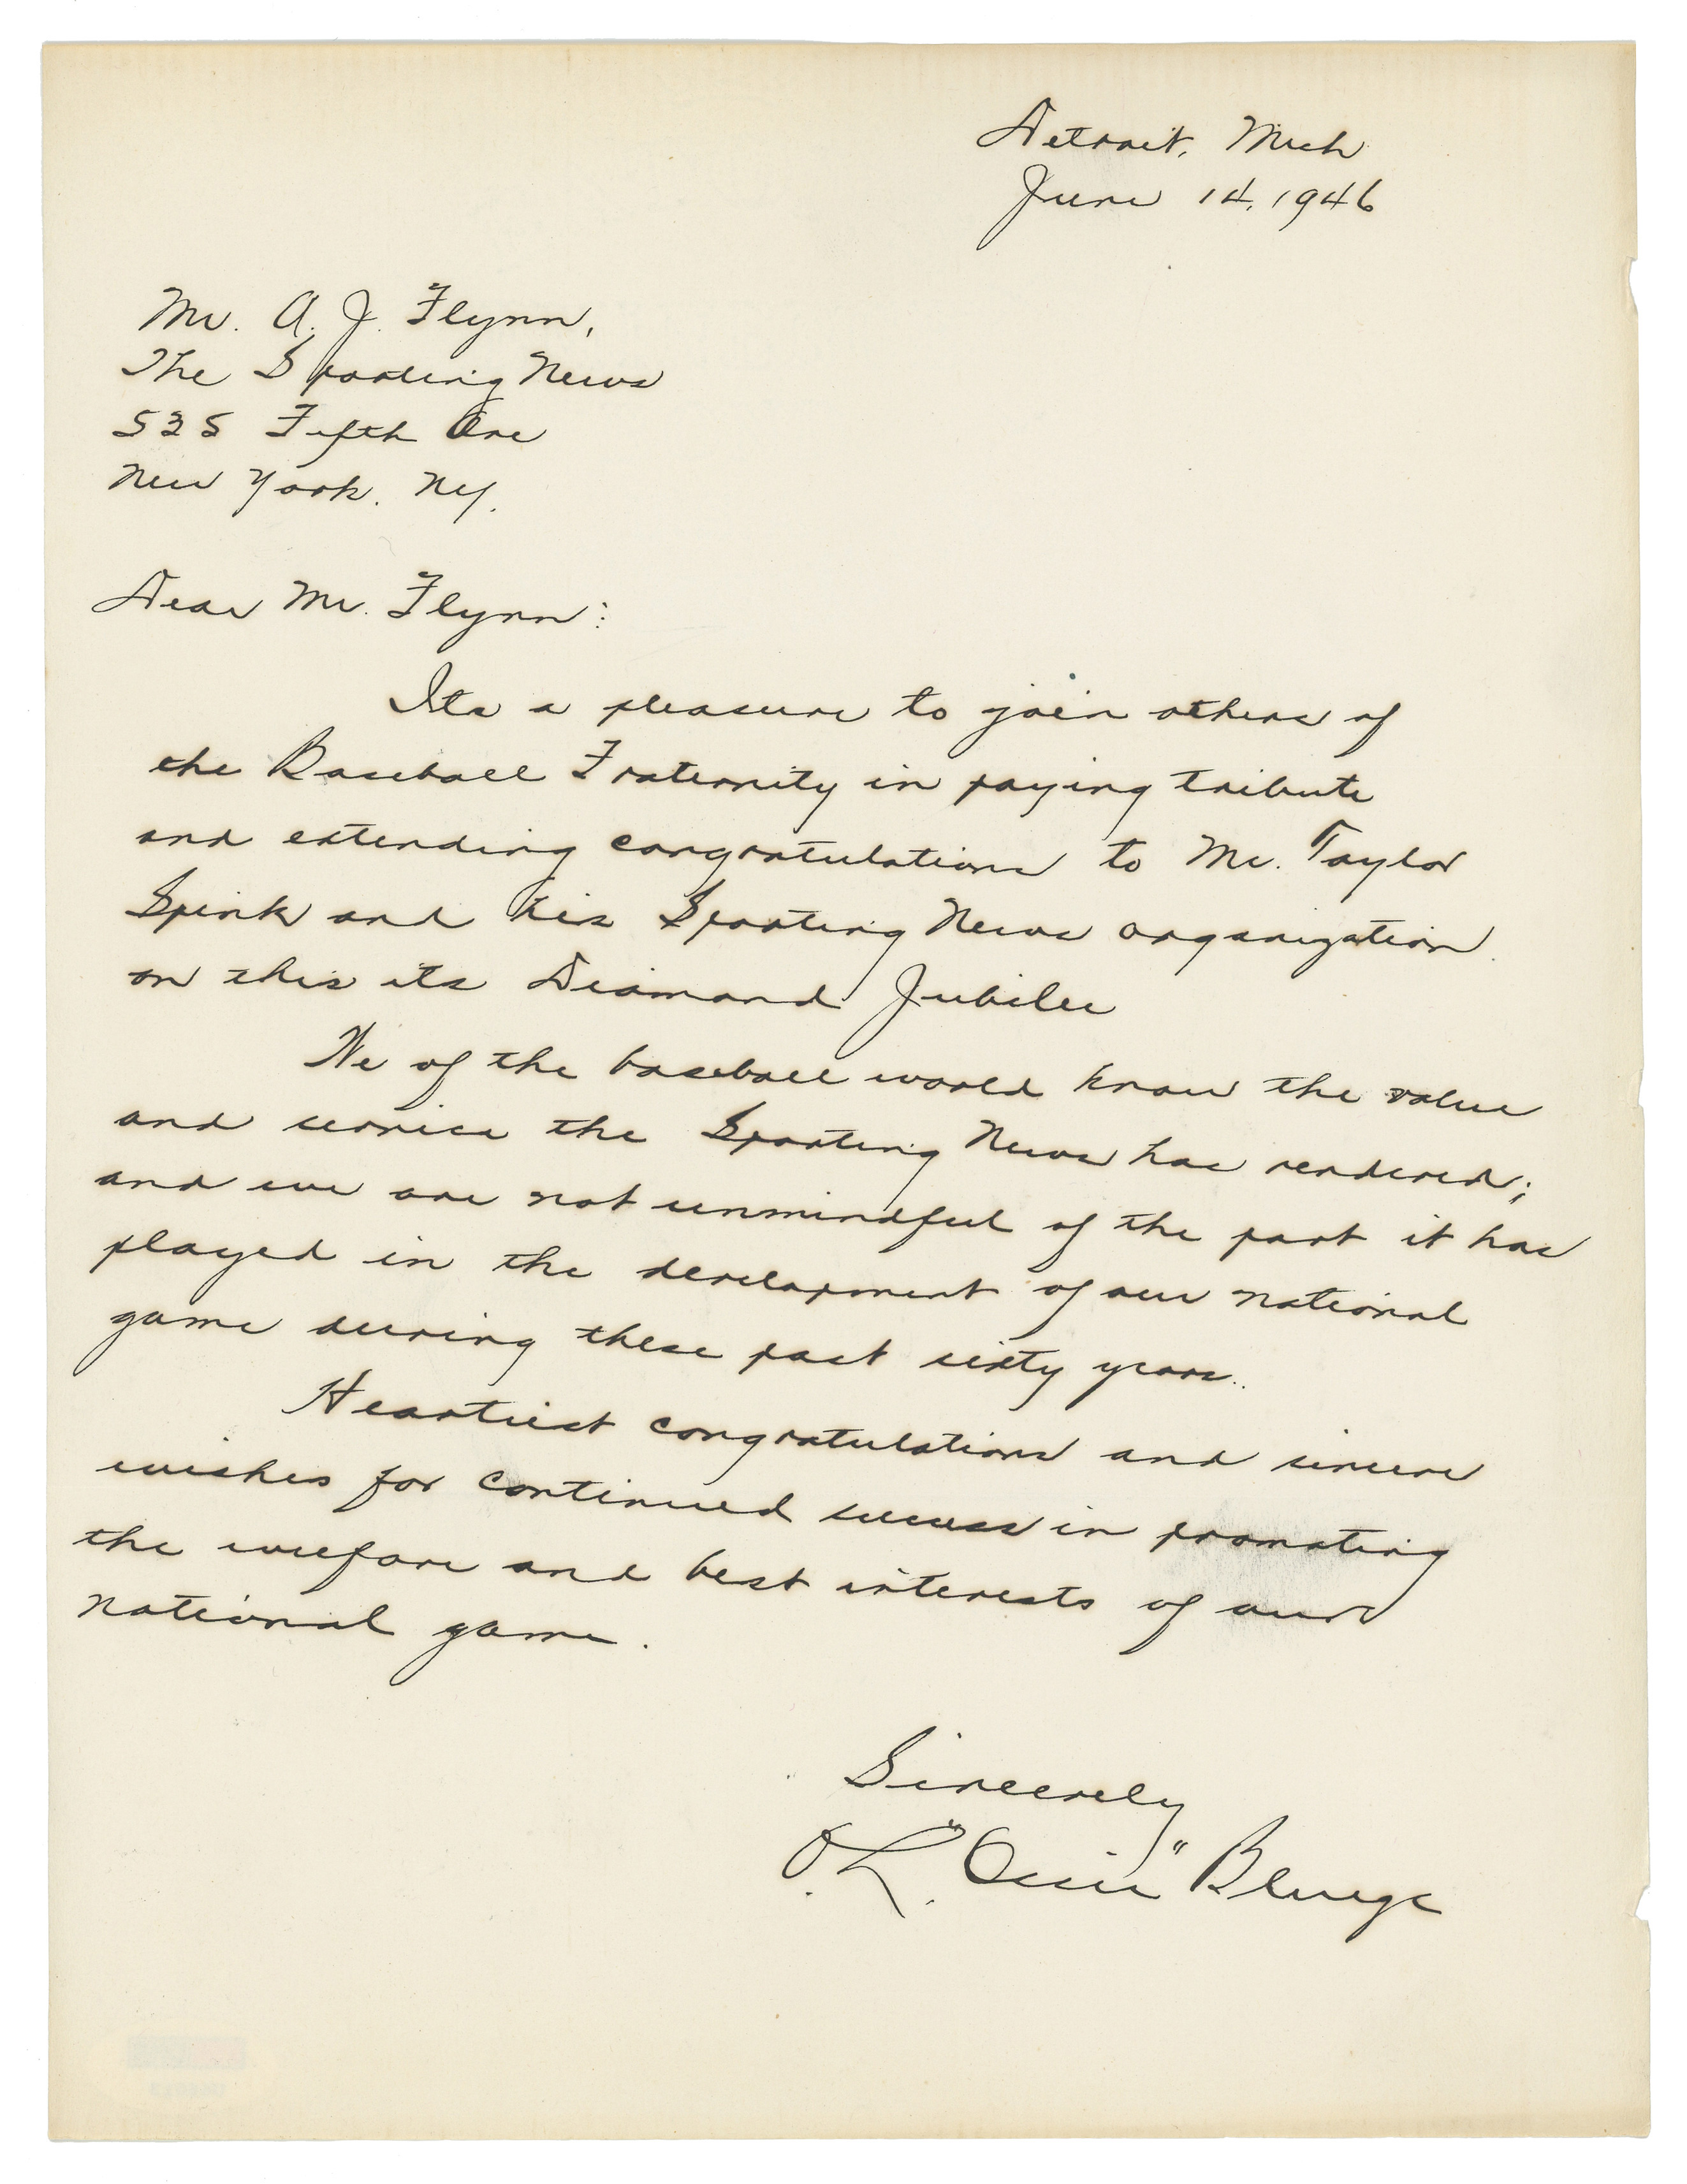 Detroit, Mich
June 14, 1946
Mr. A. J. Flynn,
The Sporting News
535 Fifth Ave
New York. NY.
Dear Mr. Flynn:
Its a pleasure to join others of
the Baseball Fraternity in paying tribute
and extending congratulations to Mr. Taylor
Spink and his Sporting News organization.
on this its Diamond Jubilee
We of the baseball world know the value
and service the Sporting News has rendered;
and we are not unmindful of the part it has
played in the development of our national
game during these past sixty years.
Heartiest congratulations and sincere
wishes for continued success in promoting
the welfare and best interests of our
national game.
Sincerely
O. L. "Ossie" Bluege